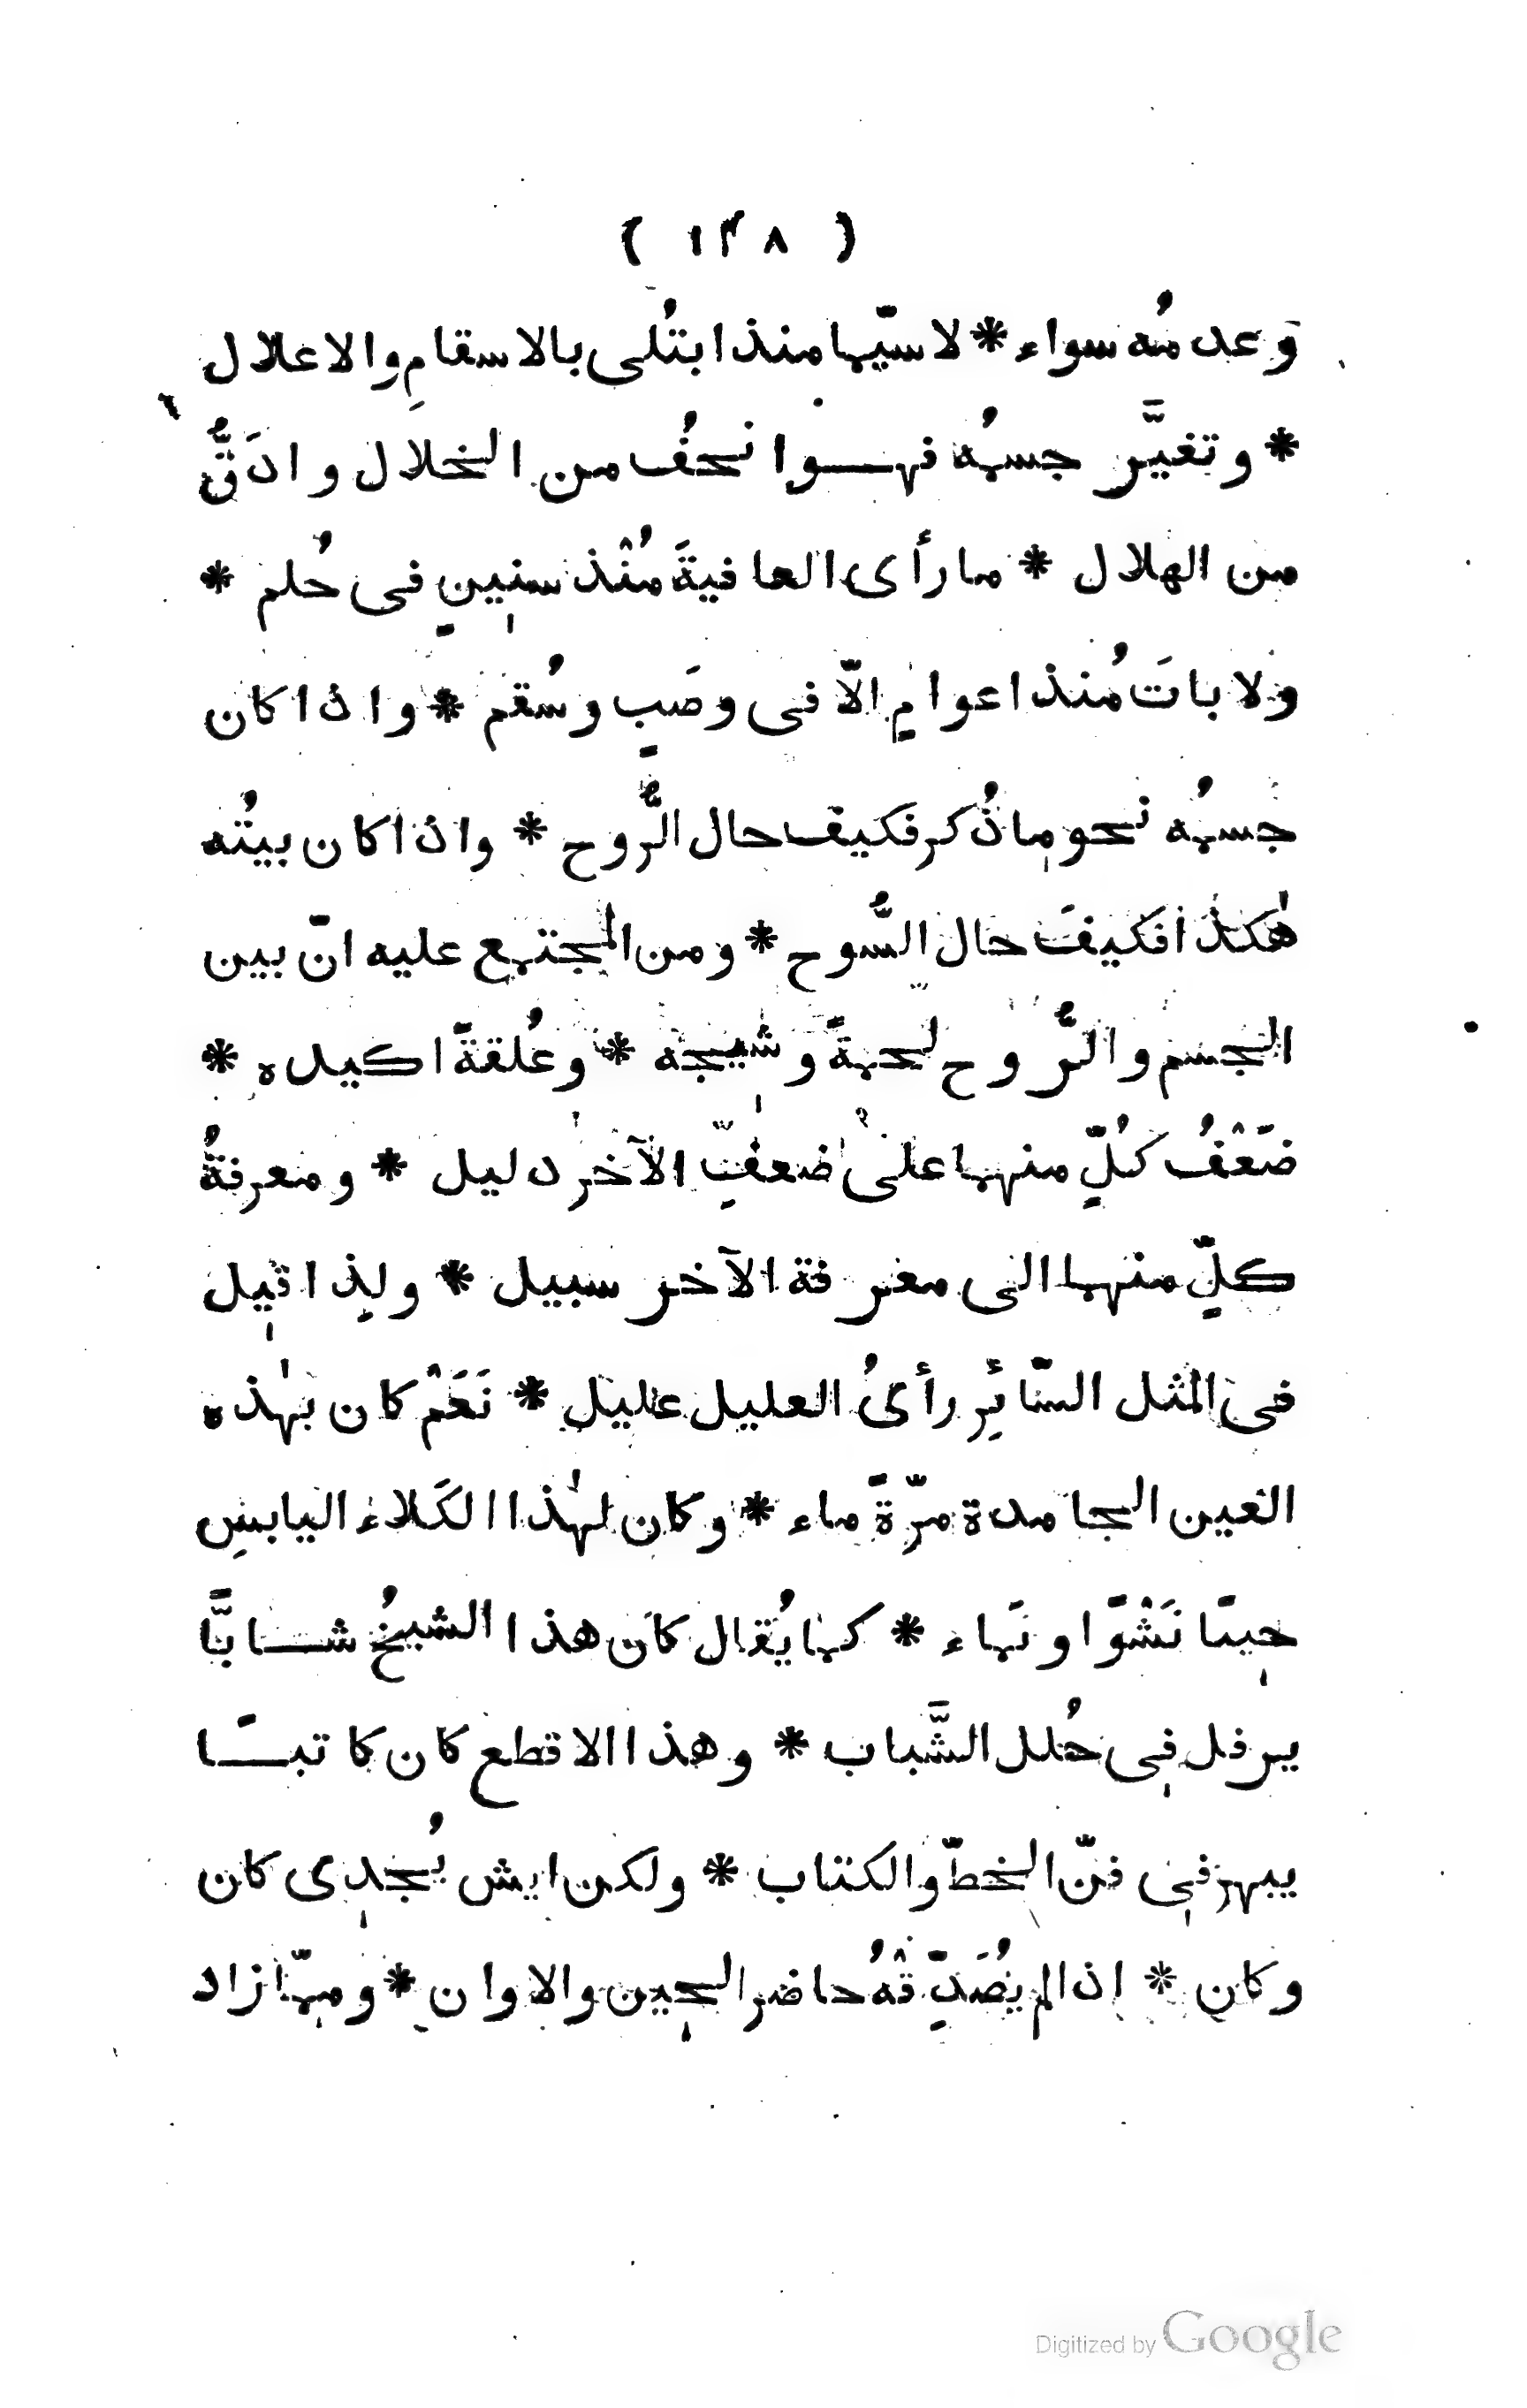 ( ١٣٨ )
وعدمُه سواء * لا سيّما منذ ابتُلى بالاسقامِ والاعلال
* وتغيَّر جسمُه فهو انحفُ من الخلال وادَقُّ
من الهلال * ما رأى العافيةَ مُنْذ سنينٍ فى حُلم *
ولا باتَ مُنذ اعوامٍ الّا فى وصَبٍ وسُقم * واذا كان
جسمُه نحو ما ذُكر فكيف حال الرُّوح * واذا كان بيتُه
هٰكذا فكيفَ حال السُّوح * ومن المجتمع عليه انّ بين
الجسم والرُّوح لحمةً وشيجه * وعُلقةً اكيده *
ضَعْفُ كُلٍّ منهما علىٰ ضعفِ الآخر دليل * ومعرفةُ
كلٍّ منهما الى معرفة الآخر سبيل * ولذا قيل
فى المثل السّائِر رأىُ العليل عليل * نَعَمْ كان بهٰذه
العين الجامدة مرّةً ماء * وكان لهٰذا الكَلاء اليابسِ
حينًا نَشْوًا ونَماء * كما يُقال كان هذا الشيخُ شابًّا
يرفل فى حُلل الشَّباب * وهذا الاقطع كان كاتبًا
يمهر فى فنّ الخطّ والكتاب * ولكن ايش يُجدى كان
وكان * اذا لم يُصَدِّقْهُ حاضر الحين والاوان * وممّا زاد
Digitized by Google